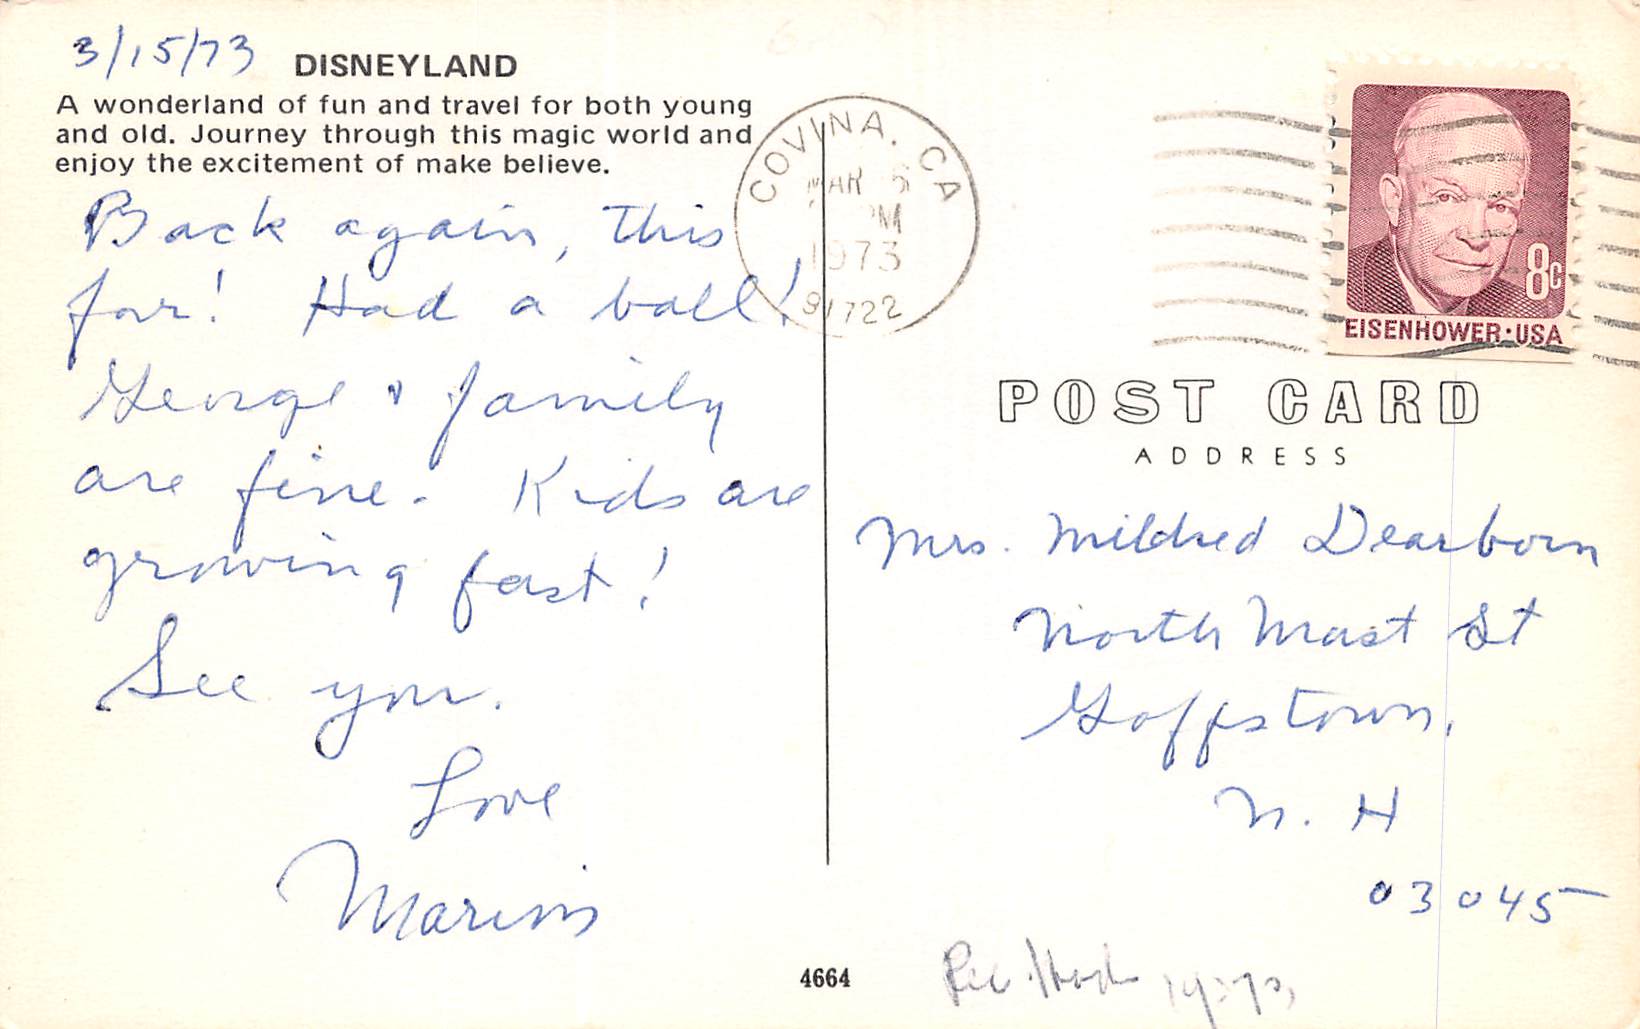 3/15/73
DISNEYLAND
A wonderland of fun and travel for both young
and old. Journey through this magic world and
enjoy the excitement of make believe.
Back again, this
far! Had a ball!
George & family
are fine. Kids are
growing fast!
See you.
Love
COVINA, CA
MAR 5
PM
1973
91722
8c
EISENHOWER·USA
POST CARD
ADDRESS
Mrs. Mildred Dearborn
North Mast St
Goffstown,
N. H
03045
4664